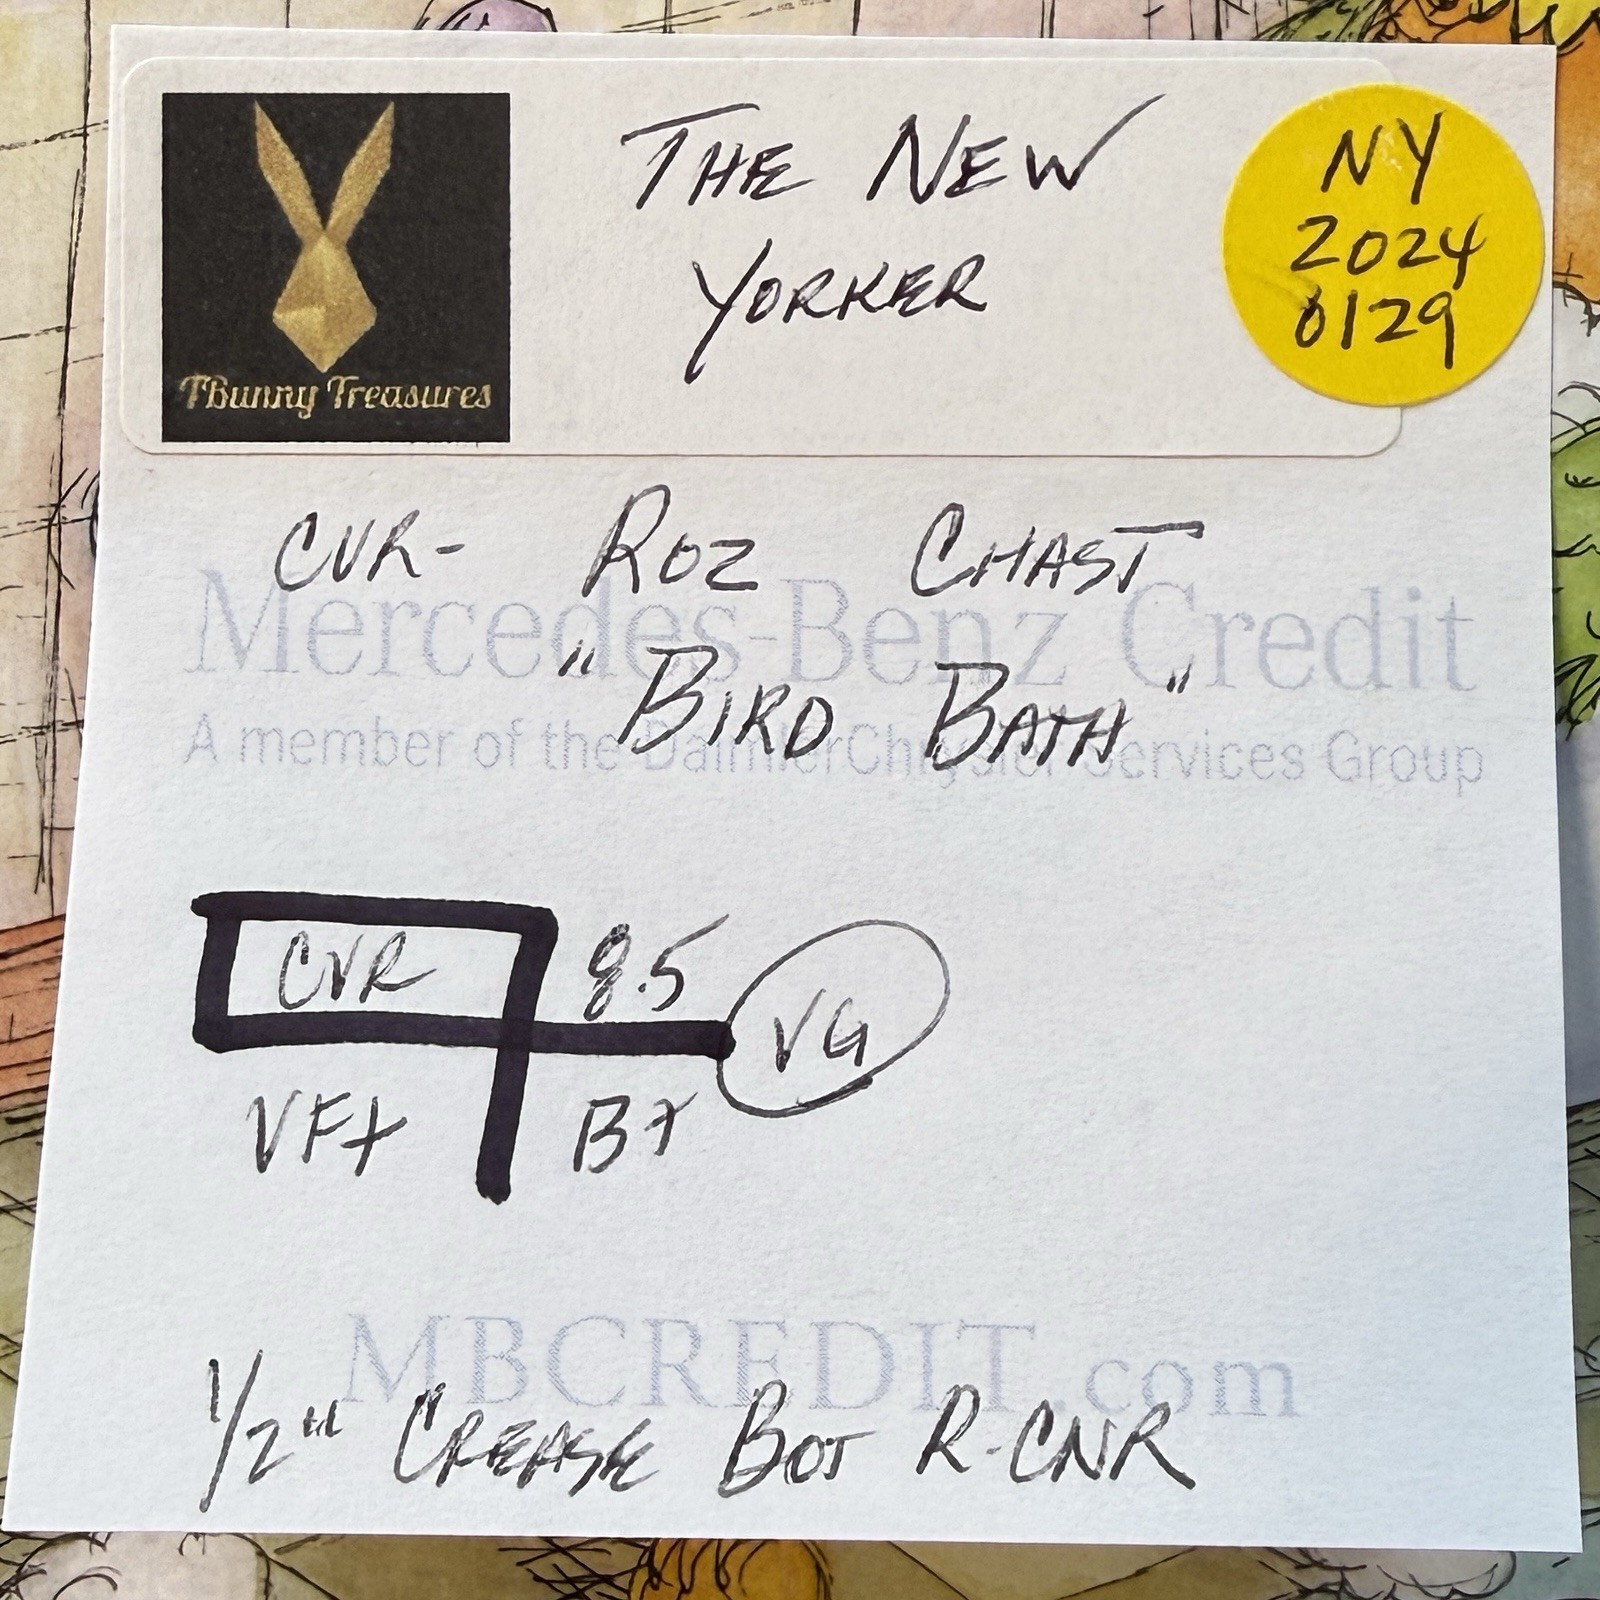 THE NEW
YORKER
NY
2024
0129
TBunny Treasures
CVR- ROZ CHAST
Mercedes-Benz Credit
"BIRD BATH"
A member of the DaimlerChrysler Services Group
CVR 8.5
VG
VF+ B+
MBCREDIT.com
1/2" CREASE BOT R-CNR